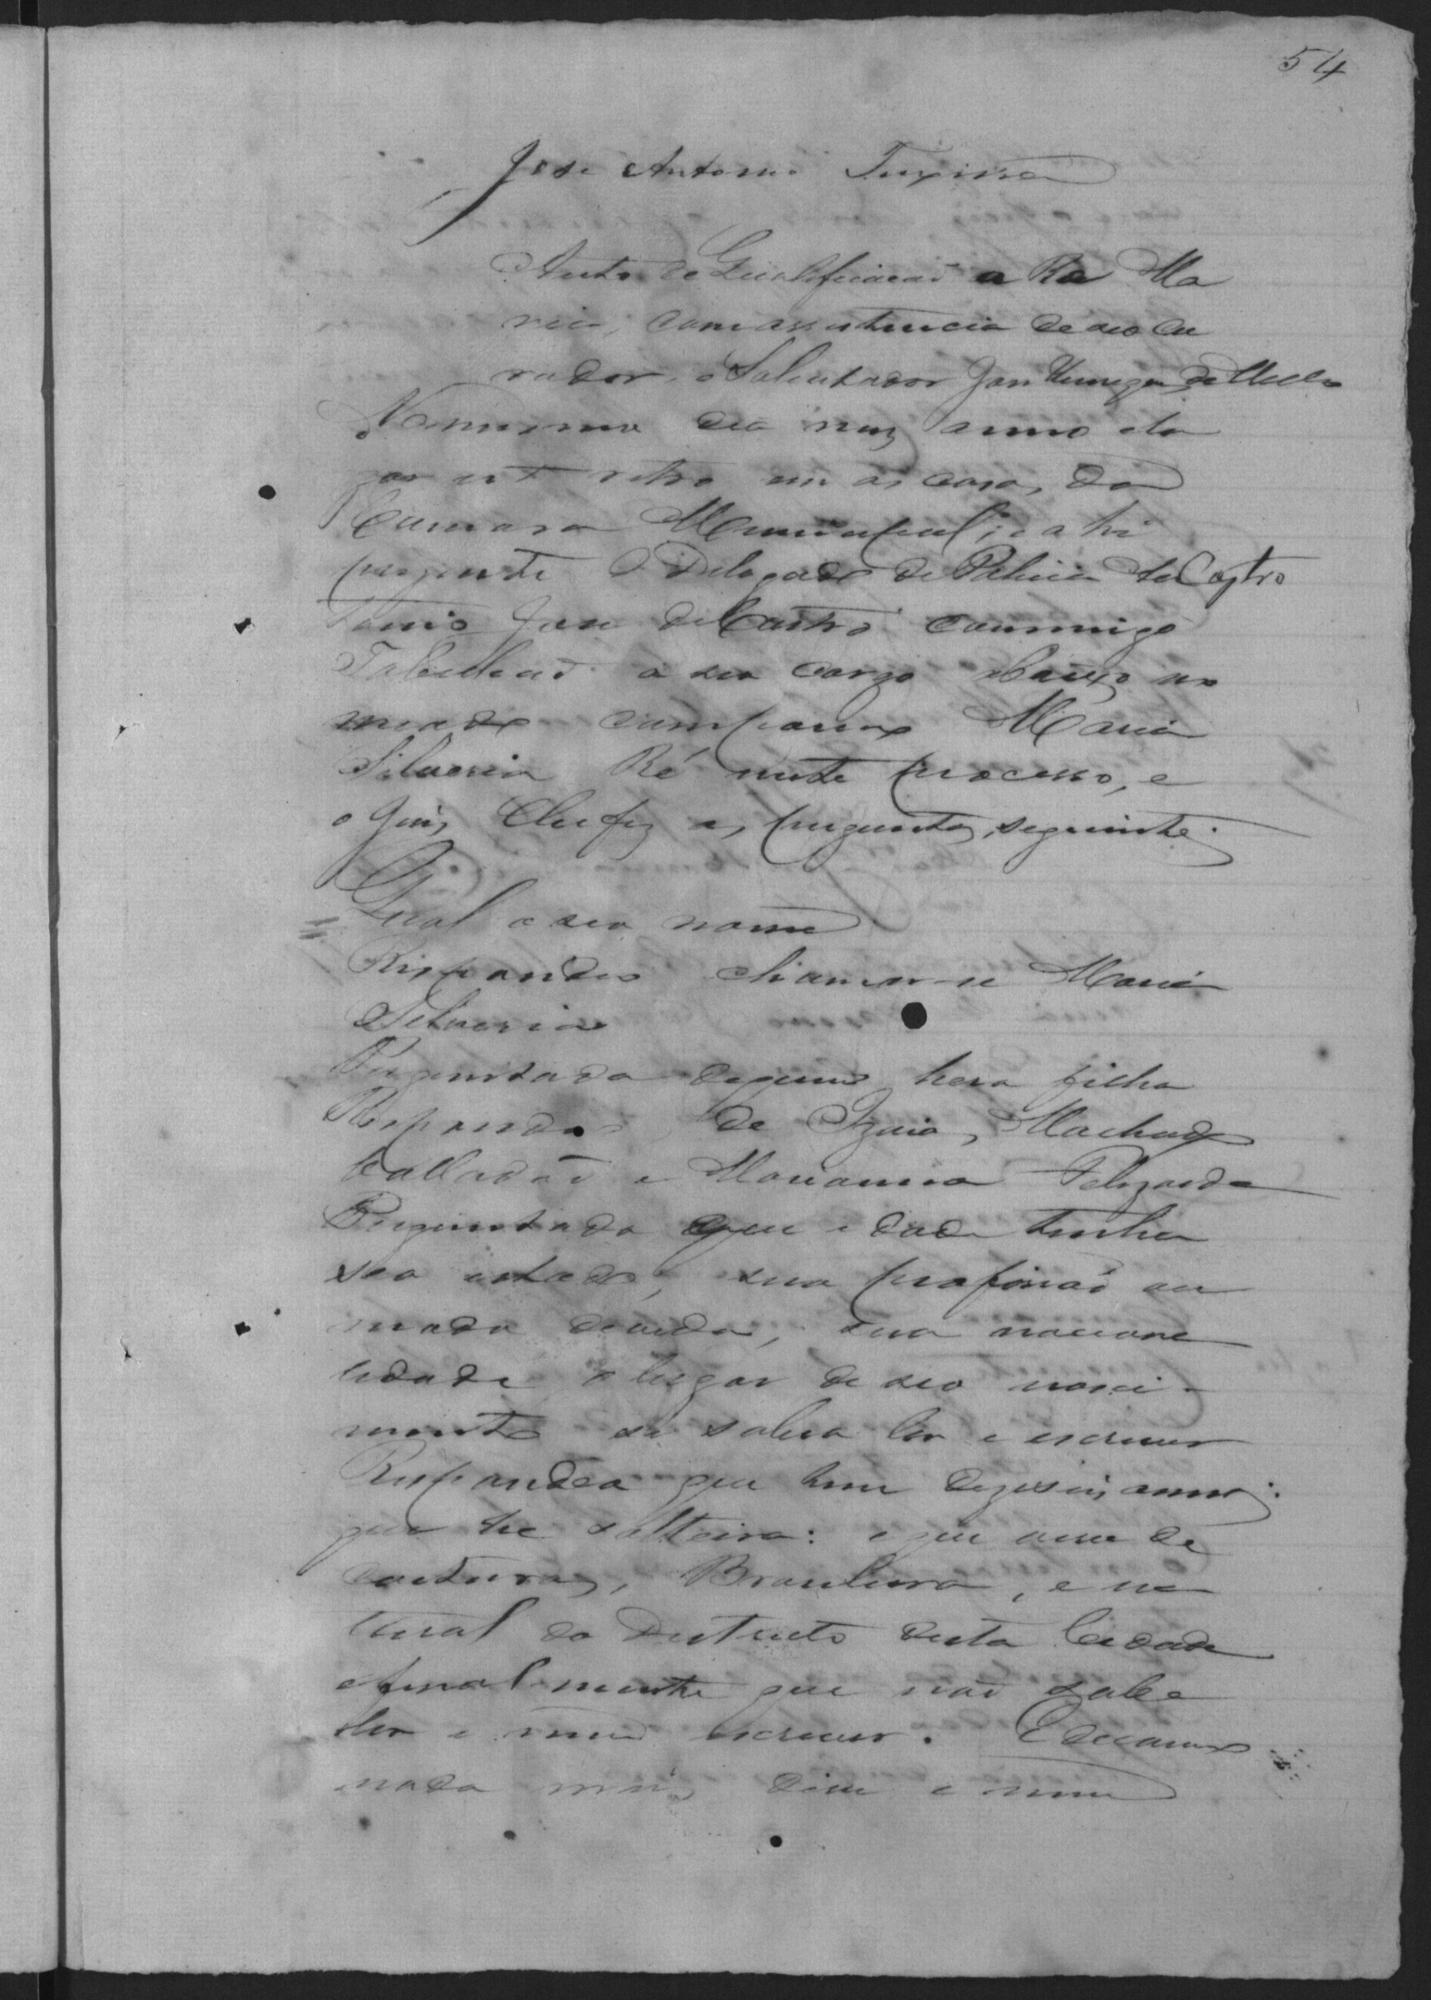 54
José Antonio Teixeira
Auto de Qualificacaõ a Re Ma
ria, com assistencia de seo Cu
rador, o Solicitador
No mesmo dia mez anno
retro em as casas da
Camara Municipal, e ahi
prezente o Delegado de Policia Castro
José de Castro commigo
Tabeliaõ a seo cargo abaixo no
meado compareceo Maria
Silveria Ré neste processo, e
o Juiz lhe fez as perguntas seguinte.
Qual o seo nome
Respondeo chamar-se Maria
Silveria
Perguntada de quem hera filha
Respondeo de Izaias Machado
e Marianna Felizarda
Perguntada que idade tinha
seo estado, sua profissaõ ou
modo de vida, sua naciona
lidade o lugar de seo nasci-
mento se sabia ler e escrever
Respondeo que tem dezeseis annos:
que he solteira: e que vive de
costuras, Brasileira, e na
tural do Destricto desta Cidade
e finalmente que naõ sabe
ler e nem escrever. E como
nada mais disse e nem